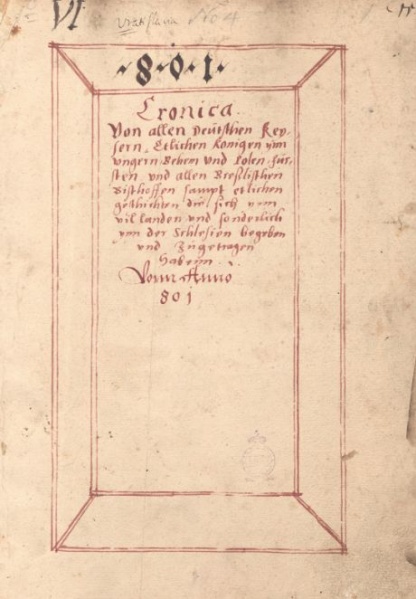 VI
No 4
·8·0·1·
Cronica.
Von allen Deutschen Key-
sern, Etlichen Konigen ynn
ungern Behem und Polen fur-
sten und allen Breslischen
Bischoffen sampt etlichen
geschichten die sich ynn
vil landen und sonderlich
ynn der Schlesien begeben
und Zugetragen
haben.
Vonn Anno
801